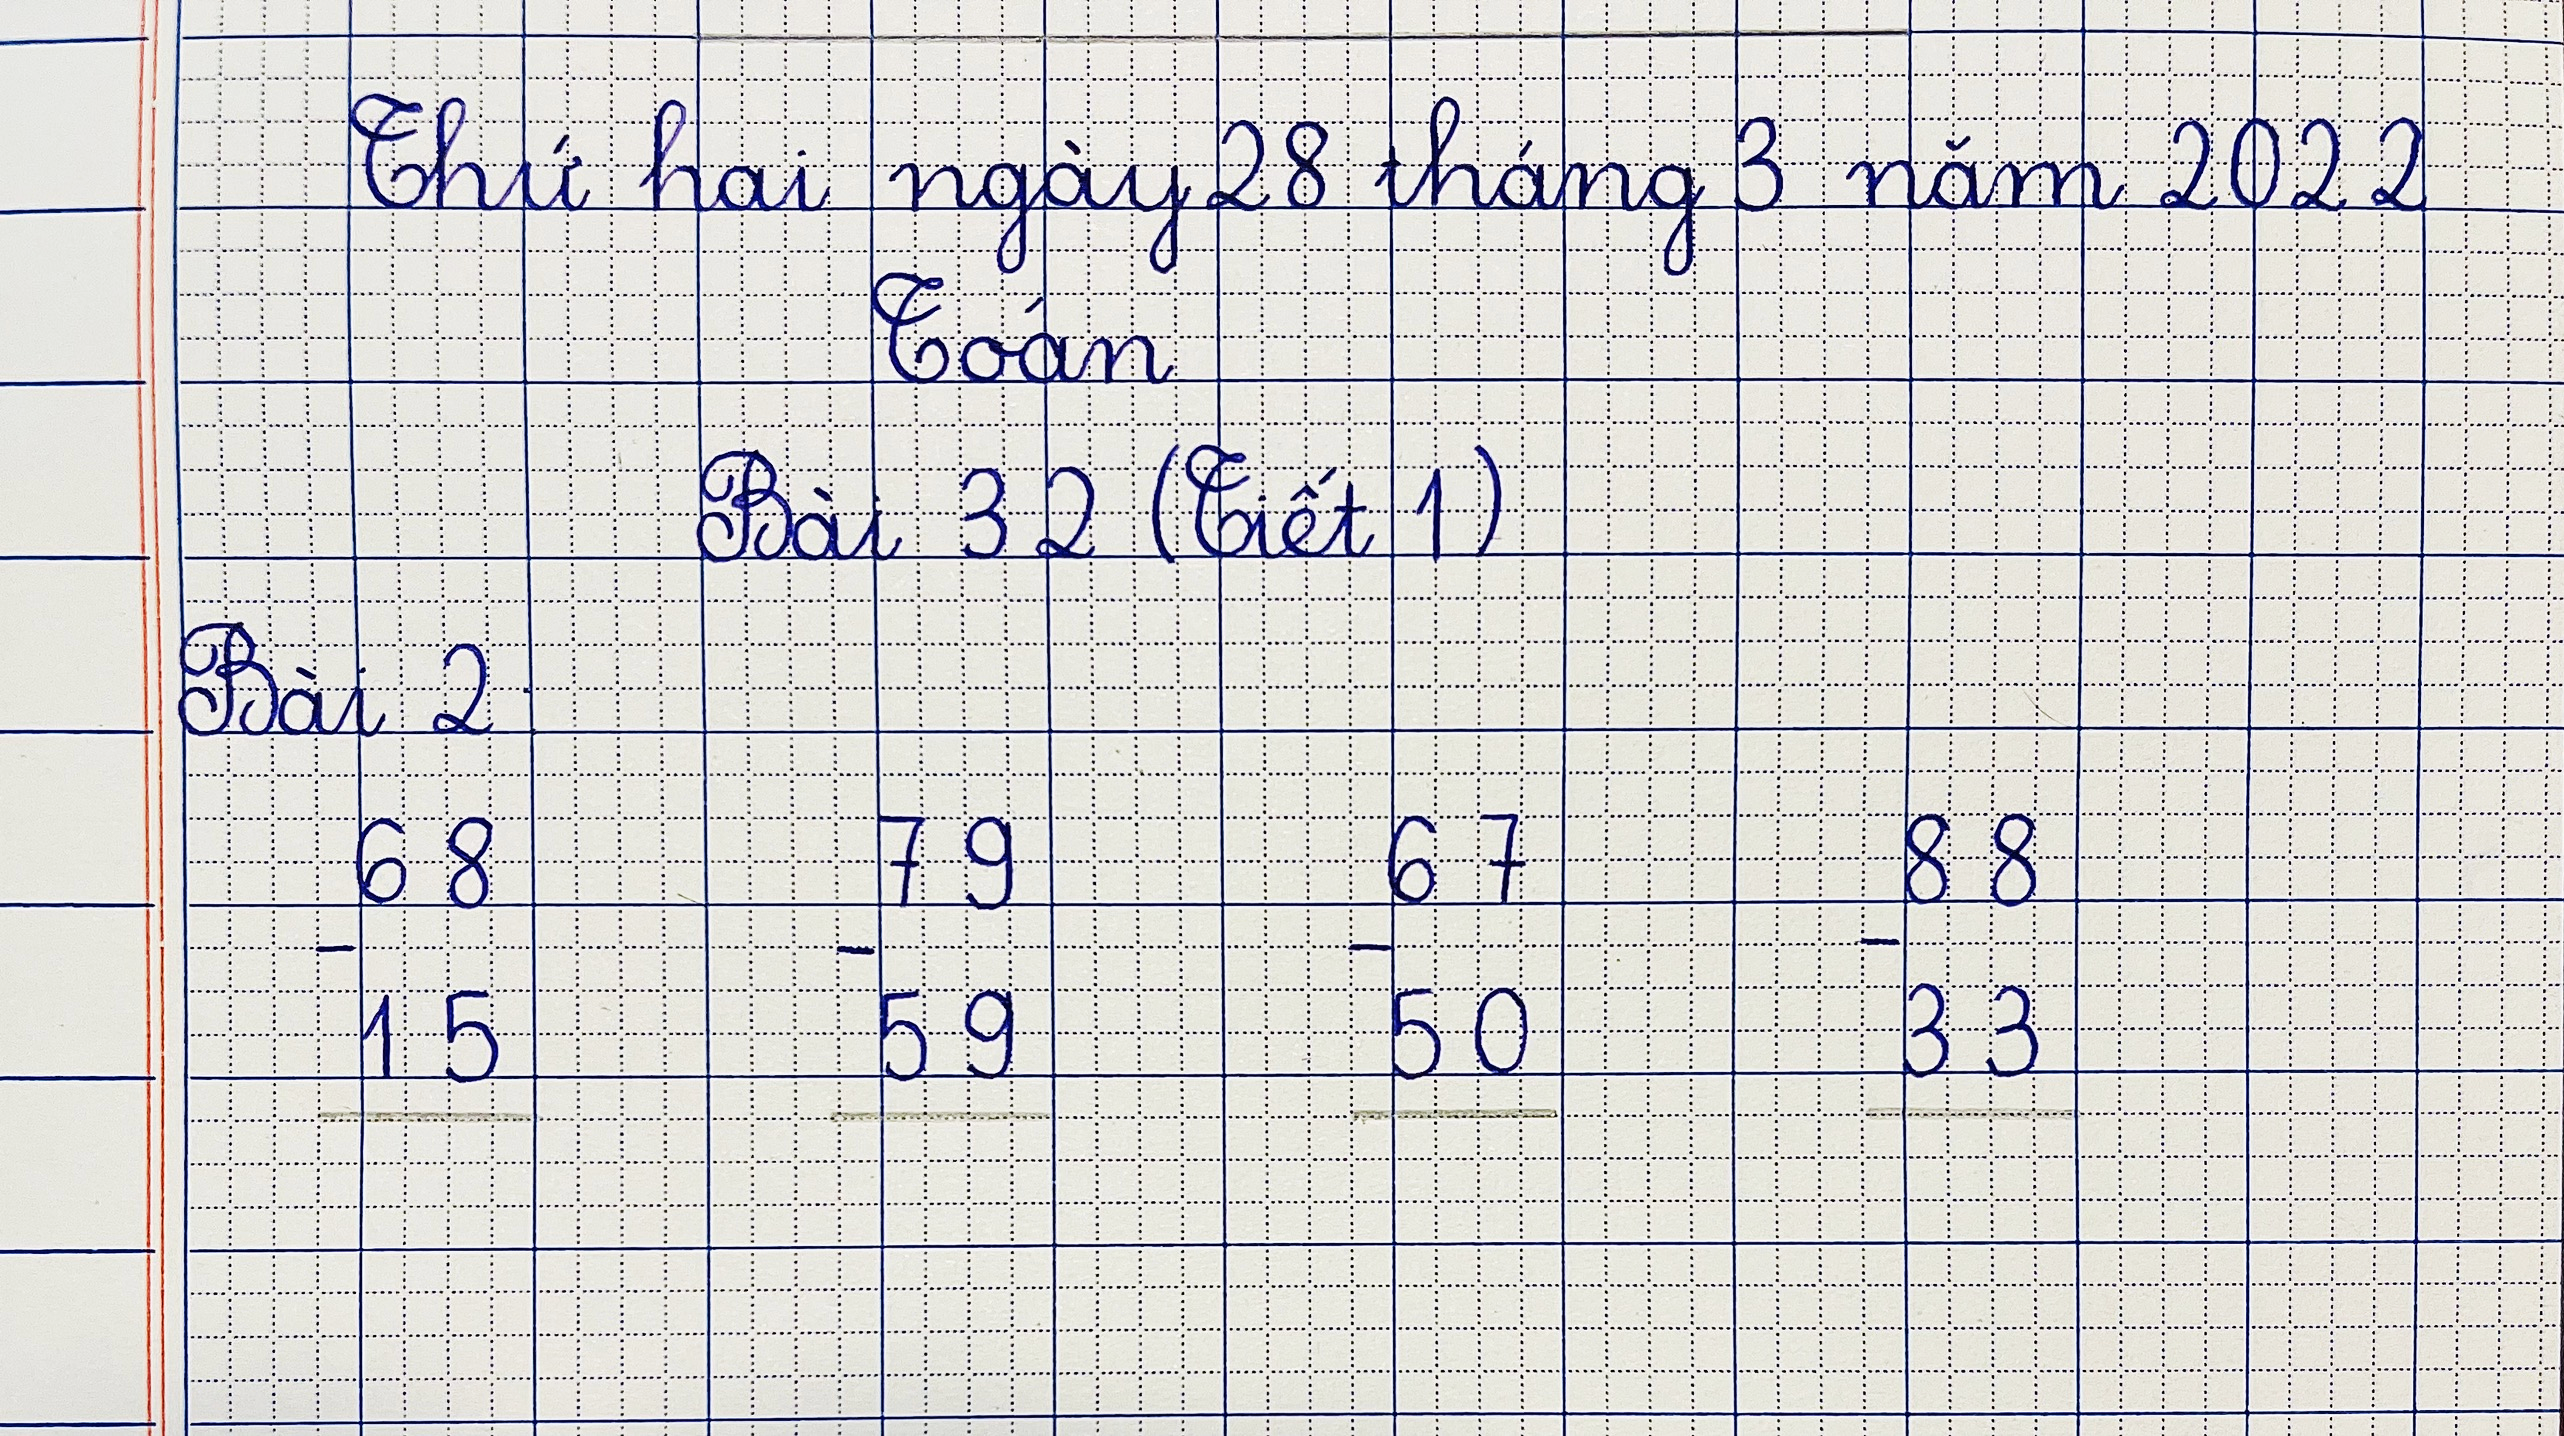 Thứ hai ngày 28 tháng 3 năm 2022
Toán
Bài 32 (Tiết 1)
Bài 2
68 79 67 88
- - - -
15 59 50 33